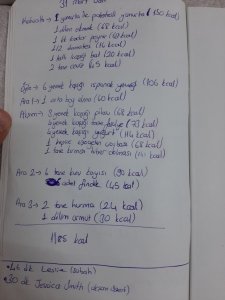 31 Mart Salı
Kahvaltı → 1 yumurta ile patatesli yumurta (150 kcal)
1 dilim ekmek (68 kcal)
1 kibrit kadar peynir (kcal)
1/2 domates (16 kcal)
1 tatlı kaşığı bal (20 kcal)
2 tane ceviz (45 kcal)
Öğle → 6 yemek kaşığı ıspanak yemeği (106 kcal)
Ara 1 → 1 orta boy elma (60 kcal)
Akşam → 3 yemek kaşığı pilav (68 kcal)
yemek kaşığı taze fasulye (73 kcal)
yemek kaşığı yoğurt (114 kcal)
1 kepçe çorbası (68 kcal)
1 tane biber dolması (kcal)
Ara 2 → 6 tane kuru kayısı (90 kcal)
adet fındık (45 kcal)
Ara 3 → 2 tane hurma (214 kcal)
1 dilim (30 kcal)
1185 kcal
dk Leslie (sabah)
30 dk Jessica Smith (akşam)